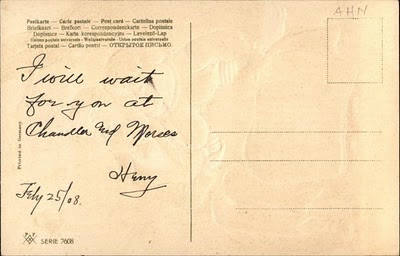 AHM
Postkarte — Carte postale — Post card — Cartolina postale
Briefkaart — Brefkort — Correspondenzkarte — Dopisnica
Dopisnice — Karta korespondencyjna — Levelező-Lap
Unions postale universelle — Weltpostverein — Union postale universelle
Tarjeta postal — Cartão postal — ОТКРЫТОЕ ПИСЬМО.
I will wait
for you at
Chandler and Morses
Heny
Feby 25/08.
Printed in Germany
SERIE 7608